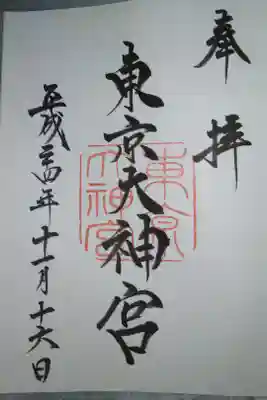 奉拝
東京大神宮
東京
大神宮
平成二四年十一月十六日